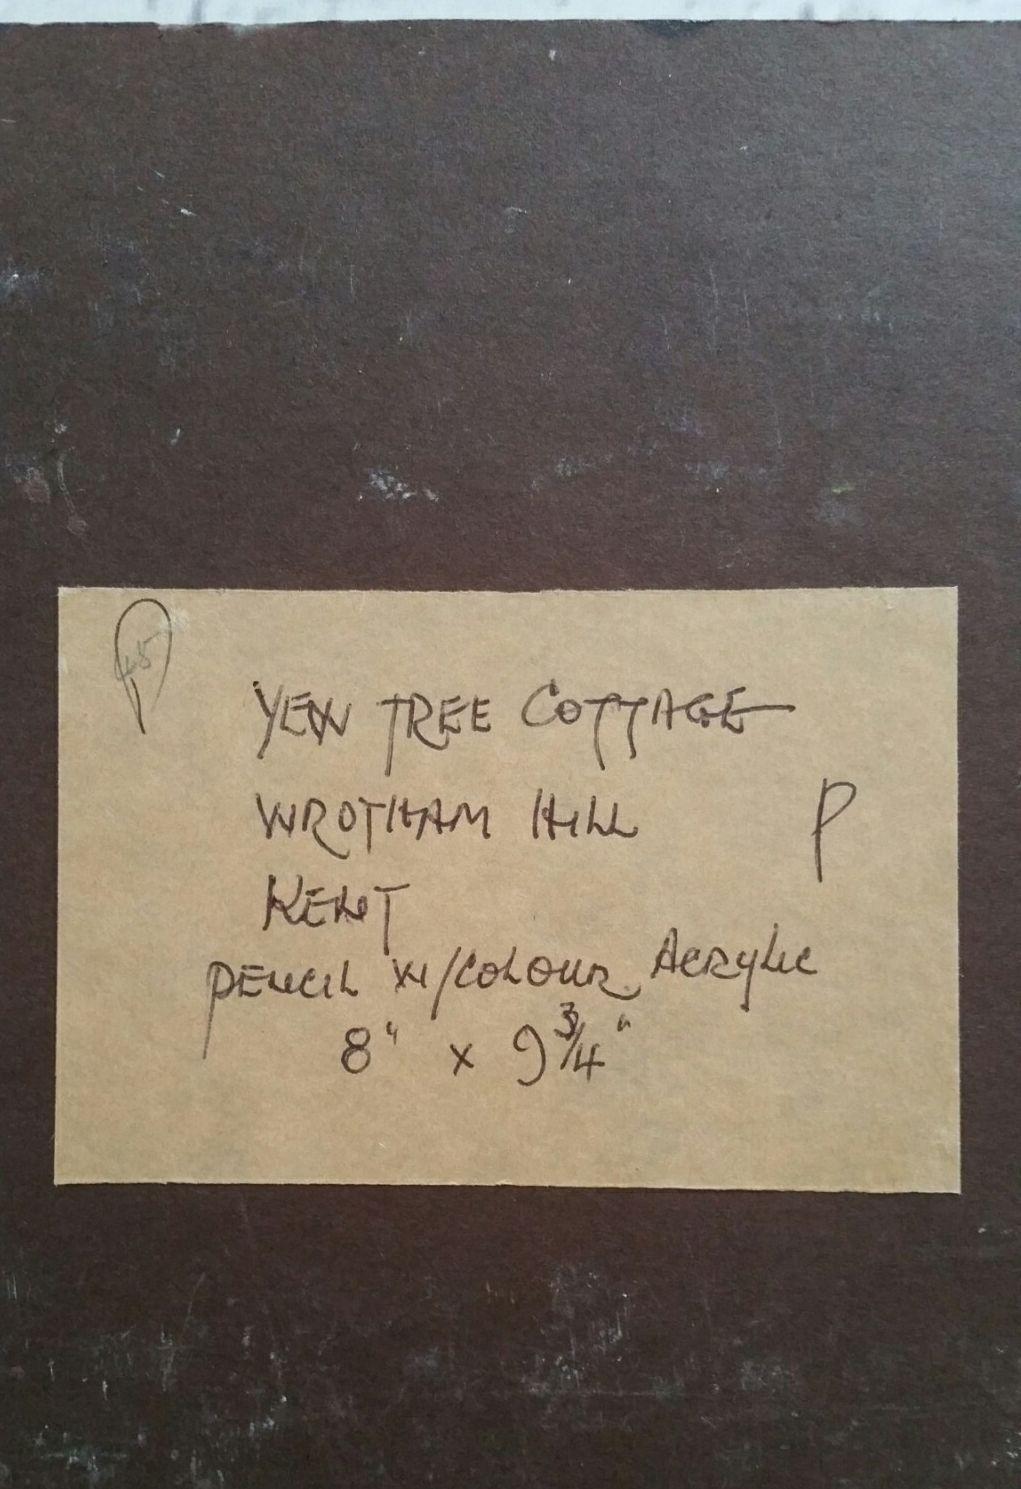 45
YEW TREE COTTAGE
WROTHAM HILL
P
KENT
PENCIL W/COLOUR ACRYLIC
8" x 9 3/4"